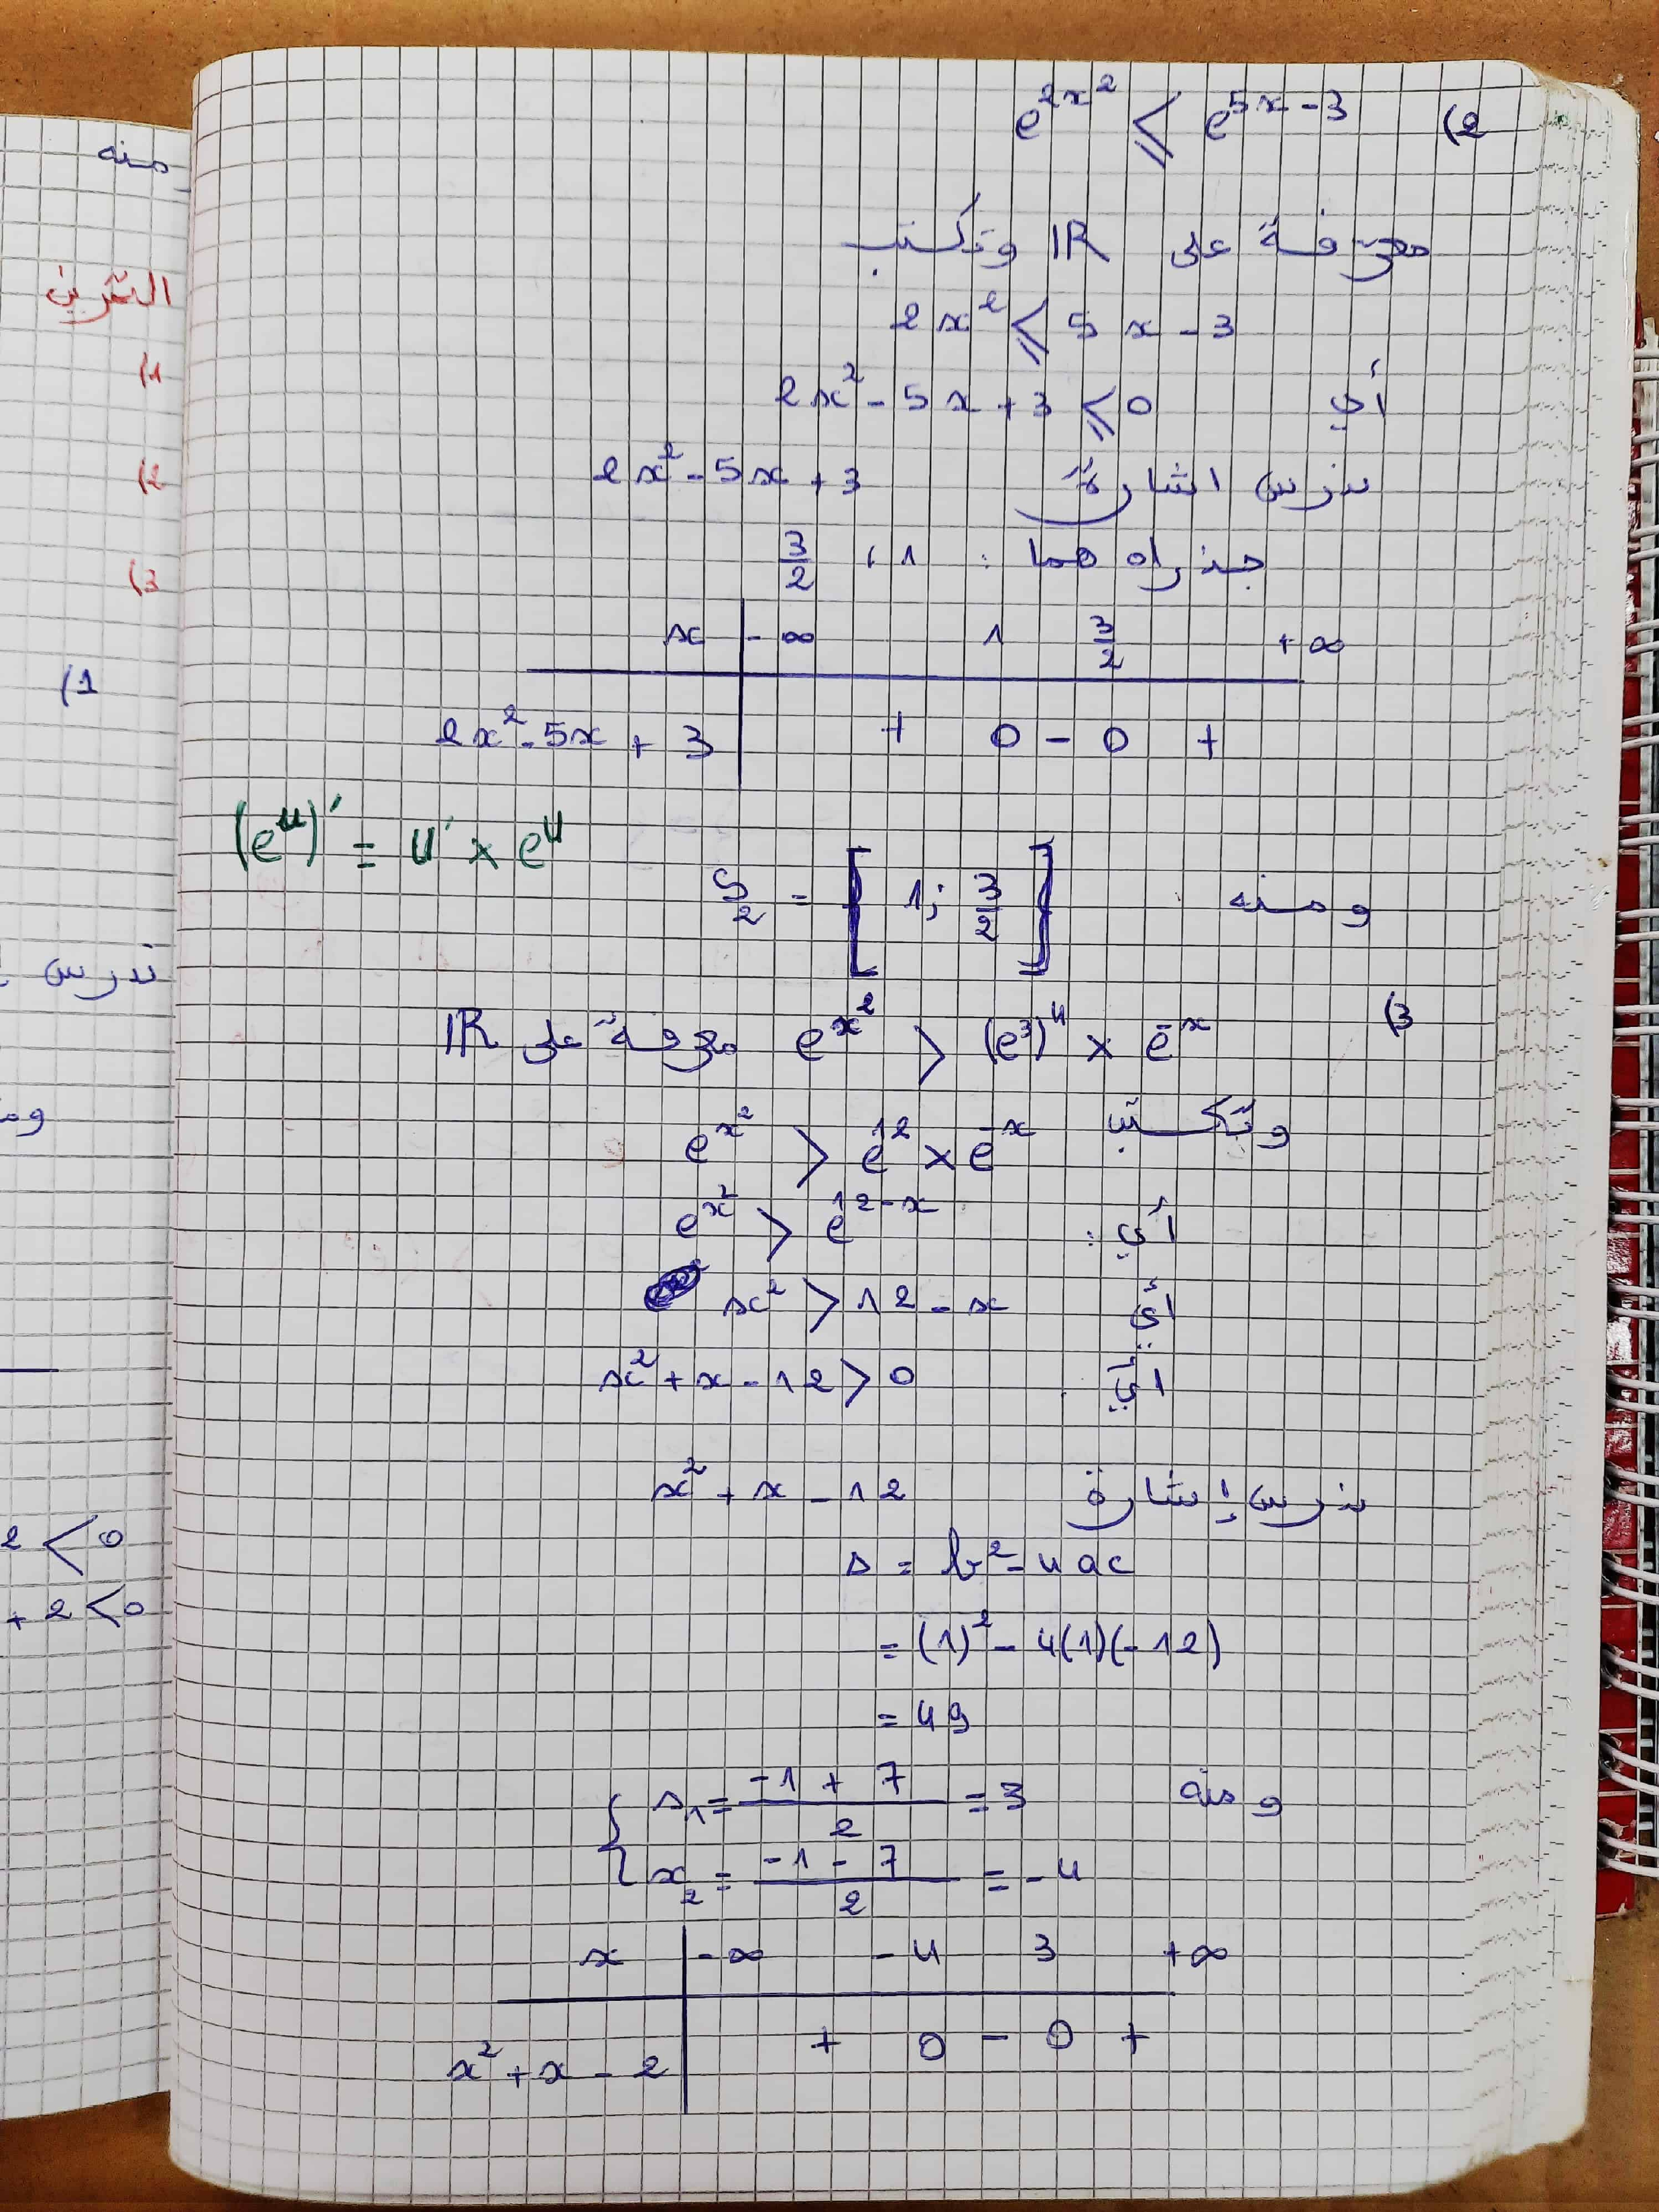 ومنه
التمرين
1)
2)
3)
1)
ندرس
2 < 0
+ 2 < 0
2) e^{2x²} ⩽ e^{5x-3}
معرفة على IR وتكتب
2x² ⩽ 5x - 3
أي 2x² - 5x + 3 ⩽ 0
ندرس اشارة 2x² - 5x + 3
جذراه هما : 1 ، 3/2
x | -∞ 1 3/2 +∞
2x² - 5x + 3 | + 0 - 0 +
(e^u)' = u' × e^u
ومنه : S₂ = [1 ; 3/2]
3) e^{x²} > (e³)⁴ × e^{-x} معرفة على IR
وتكتب e^{x²} > e^{12} × e^{-x}
أي : e^{x²} > e^{12-x}
أي x² > 12 - x
أي x² + x - 12 > 0
ندرس إشارة x² + x - 12
Δ = b² - 4ac
= (1)² - 4(1)(-12)
= 49
ومنه { x₁ = (-1 + 7)/2 = 3
x₂ = (-1 - 7)/2 = -4
x | -∞ -4 3 +∞
x² + x - 2 | + 0 - 0 +